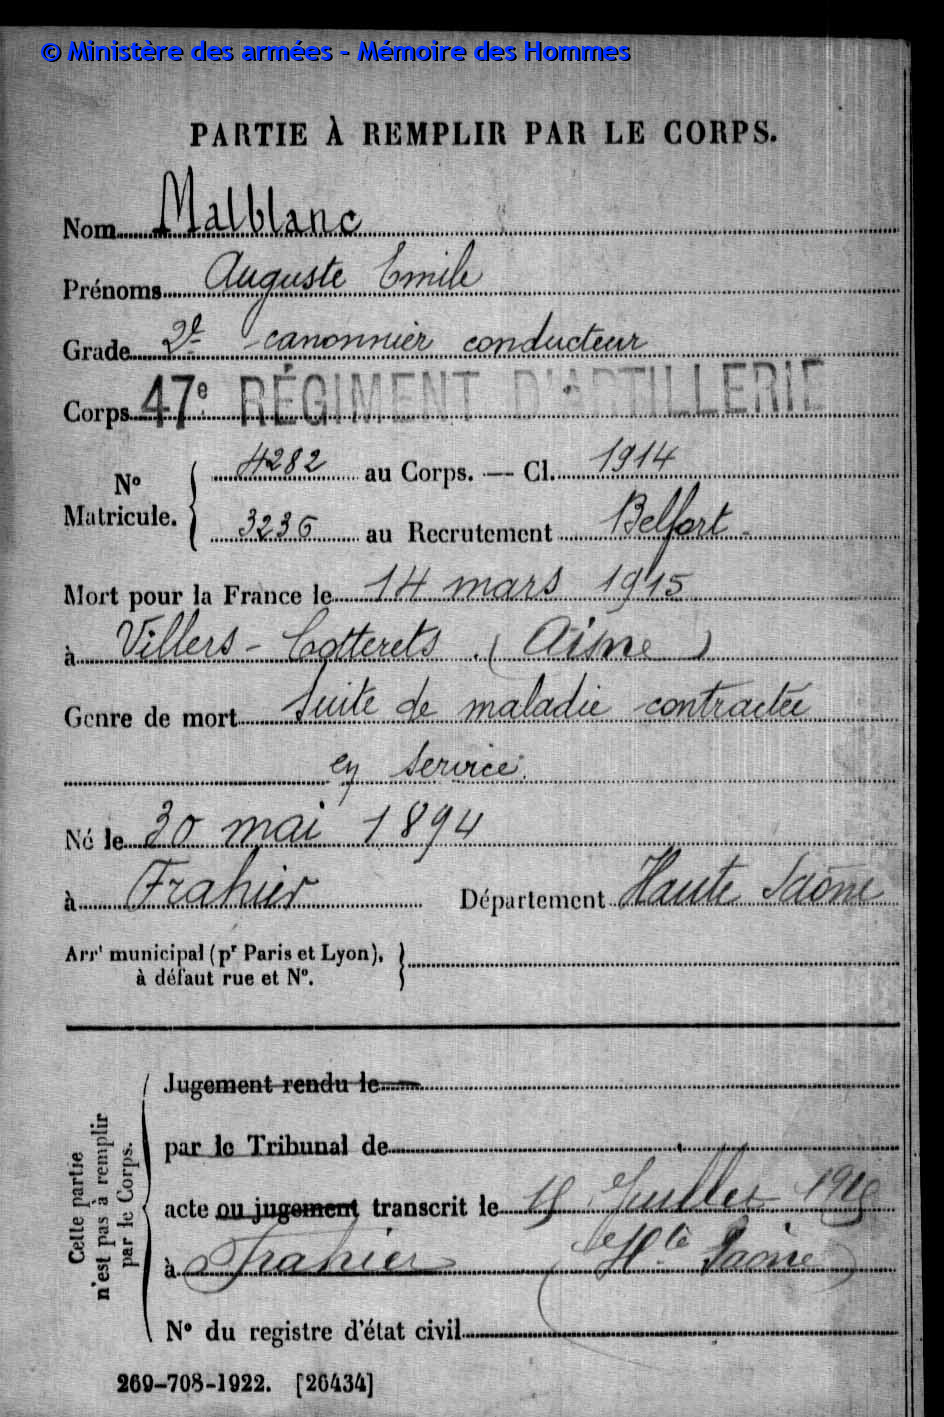 © Ministère des armées - Mémoire des Hommes
PARTIE À REMPLIR PAR LE CORPS.
Nom Malblanc
Prénoms Auguste Emile
Grade 2e canonnier conducteur
Corps 47e RÉGIMENT D'ARTILLERIE
No Matricule. { 4282 au Corps. — Cl. 1914
3236 au Recrutement Belfort
Mort pour la France le 14 mars 1915
à Villers-Cotterets (Aisne)
Genre de mort Suite de maladie contractée
en service
Né le 30 mai 1894
à Frahier Département Haute Saône
Arrt municipal (pr Paris et Lyon), à défaut rue et No. }
Cette partie n'est pas à remplir par le Corps. {
Jugement rendu le
par le Tribunal de
acte ou jugement transcrit le 15 Juillet 1915
à Frahier (Hte Saône)
No du registre d'état civil
269-708-1922. [26434]